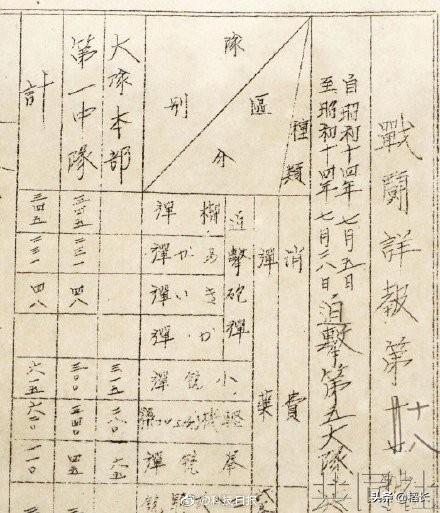 戰鬪詳報第
自昭和十四年七月五日
至昭和十四年七月二八日 迫擊第五大隊
種類
消費
彈藥
迫擊砲彈
榴彈
あか彈
きい彈
彈
小銃彈
拳銃彈
隊
區分
別
大隊本部 三一五 二八〇 六五
第一中隊 三四五 二三一 四八 三〇〇 三四〇 四五
計 三四五 二三一 四八 六一五 六二〇 一一〇
科技日报
头条 @稻长